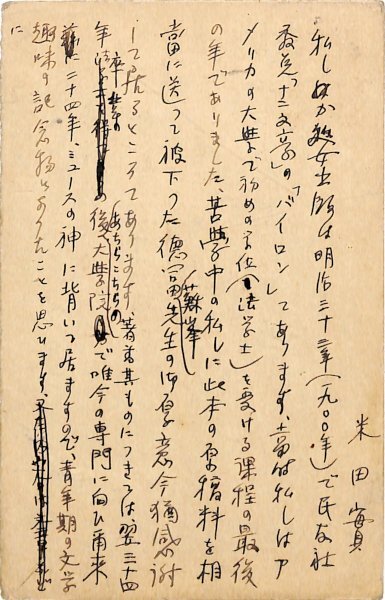 米田實
私しの処女出版は明治三十三年(一九〇〇年)で民友社
発兌「十二文豪」の「バイロン」であります、当時私しはア
メリカの大学で初めの学位(法学士)を受ける課程の最後
の年でありました、苦学中の私しに此本の原稿料を相
当に送って被下つた徳富蘇峯先生の御厚意今猶感謝
して居るところであります、著書其ものにつきては翌三十四
年卒業の後、あちらこちらの大学院で唯今の専門に向ひ爾来
二十四年、ミュースの神に背いて居ますので、青年期の文学
趣味の記念物となりたことを思ひます、
に